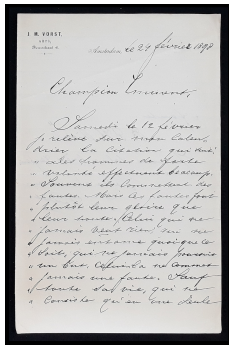 J. M. VORST,
Amsterdam, le 24 février 1898
Champion Eminent,
Samedi le 12 février
je relève sur mon calen-
drier la citation qui suit:
" Les hommes de forte
" volonté effectuent beaucoup.
" Souvent ils commettent des
" fautes. Mais
" plutôt leur gloire que
" leur honte. Celui qui ne
" jamais veut rien, ou ne
" jamais entame quoique ce
" soit, qui ne jamais poursuit
" un but, celui-là ne commet
" jamais une faute. Sauf
" toute sa vie, qui ne
" consiste qu'en une seule